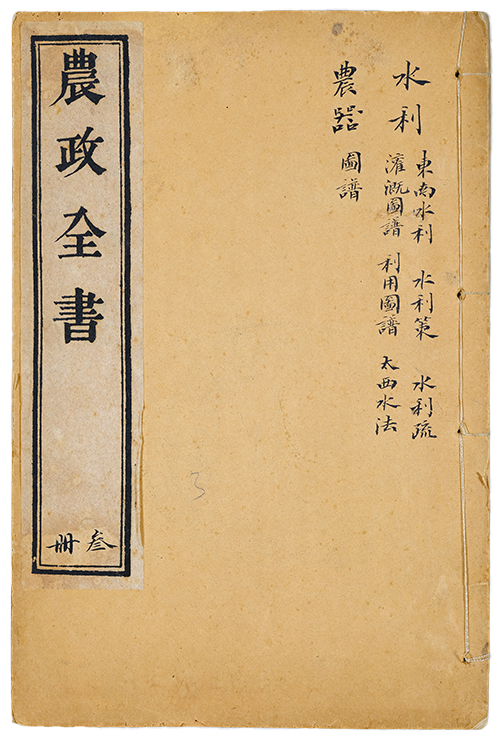 水利
東南水利 水利策 水利疏
灌溉圖譜 利用圖譜 太西水法
農器
圖譜
農政全書
叁册
3